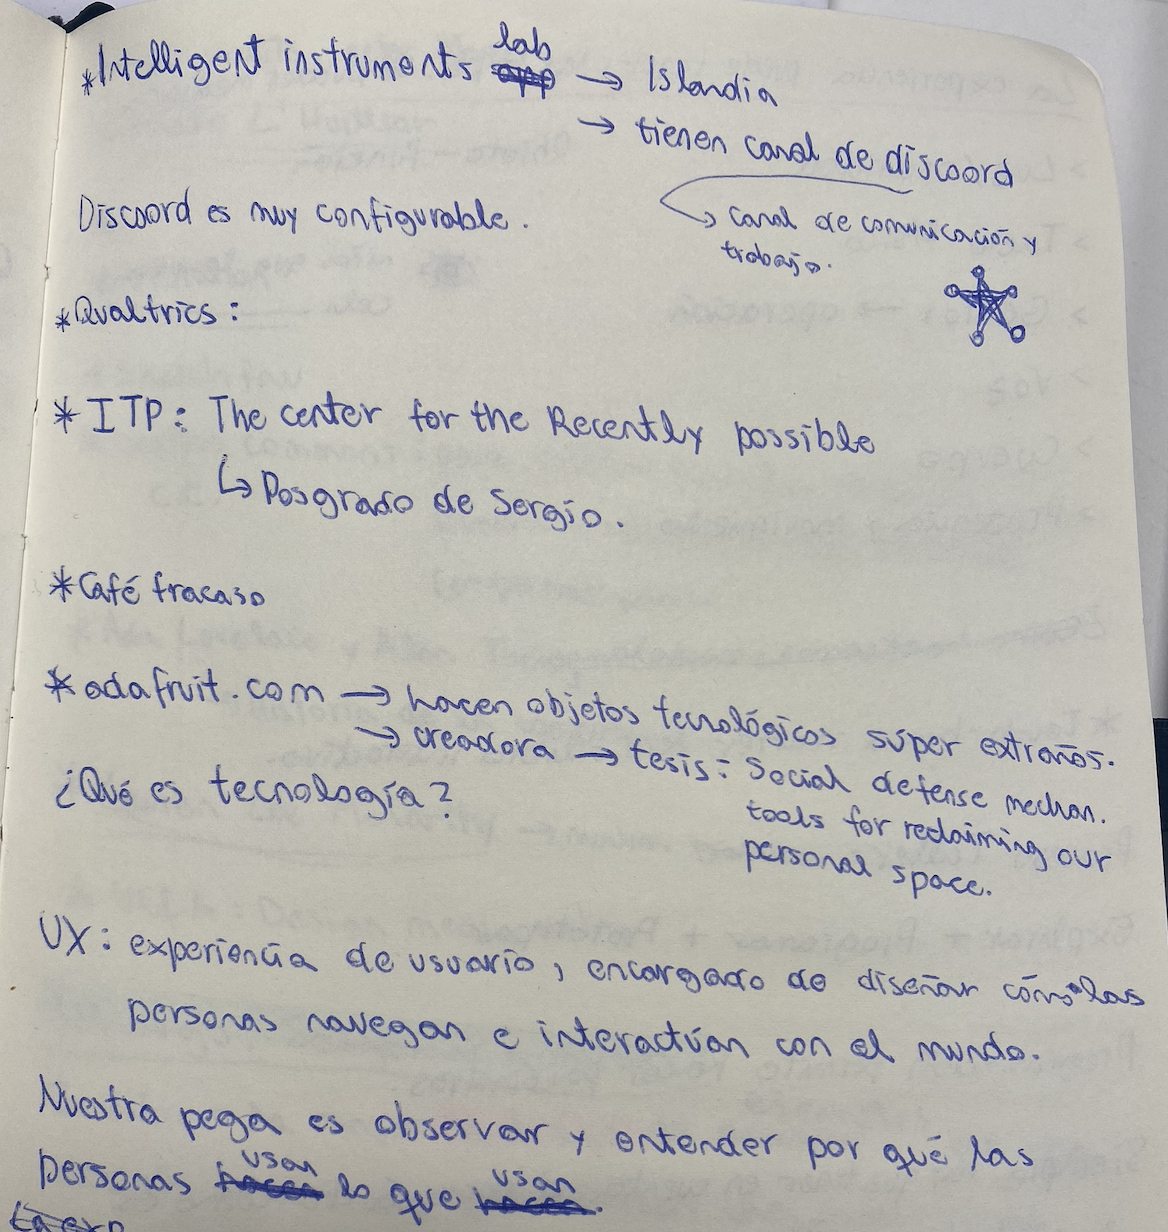 *Intelligent instruments lab → Islandia
→ tienen canal de discoord
↳ canal de comunicación y
trabajo.
Discoord es muy configurable.
*Qualtrics:
*ITP: The center for the Recently possible
↳ Posgrado de Sergio.
*Café fracaso
*adafruit.com → hacen objetos tecnológicos súper extraños.
→ creadora → tesis: Social defense mechan.
tools for reclaiming our
personal space.
¿Qué es tecnología?
UX: experiencia de usuario, encargado de diseñar cómo las
personas navegan e interactúan con el mundo.
Nuestra pega es observar y entender por qué las
personas usan lo que usan.